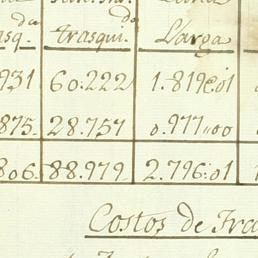 da do
asq. trasqui. Larga
931 60.222 1.819.,01
875. 28.757 0.977.,00
806. 88.979 2.796.,01
Costos de Tra